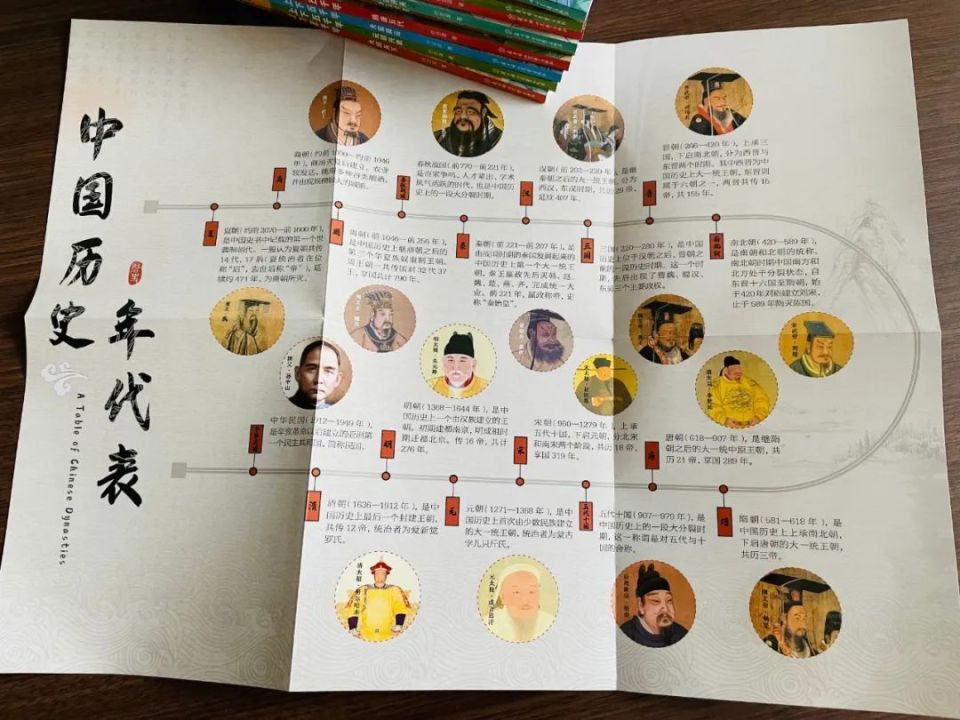 中国历史年代表
A Table of Chinese Dynasties
商
春秋战国
汉
晋
夏
周
秦
三国
南北朝
春秋战国（前770—前221年），
是百家争鸣、人才辈出、学术
风气活跃的时代，也是中国历
史上的一段大分裂时期。
汉朝（前202—220年），是继
秦朝之后的大一统王朝，分为
西汉、东汉时期，共历29帝，
延续407年。
晋朝（266—420年），上承三
国，下启南北朝，分为西晋与
东晋两个时期，其中西晋为中
国历史上大一统王朝，东晋则
属于六朝之一，两晋共传15
帝，共155年。
夏朝（约前2070—前1600年），
是中国史书中记载的第一个世
袭制朝代。一般认为夏朝共传
14代，17后（夏统治者在位称
“后”，去世后称“帝”），延
续约471年，为商朝所灭。
周朝（前1046—前256年），
是中国历史上继商朝之后的
第三个华夏族奴隶制王朝。
周王朝一共传国君32代37
王，享国共计790年。
秦朝（前221—前207年），是
由战国时期的秦国发展起来的
中国历史上第一个大一统王
朝，秦王嬴政先后灭韩、赵、
魏、楚、燕、齐，完成统一大
业。前221年，嬴政称帝，史
称“秦始皇”。
三国（220—280年），是中国
历史上位于汉朝之后，晋朝之
前的一段历史时期。这一个时
期，先后出现了曹魏、蜀汉、
东吴三个主要政权。
南北朝（420—589年），是
南朝和北朝的统称。
南北朝时期中国南方和
北方处于分裂状态，自
东晋十六国至隋朝，始
于420年刘裕建立刘宋，
止于589年隋灭陈国。
国父·孙中山
明太祖·朱元璋
中华民国（1912—1949年），
是辛亥革命以后建立的亚洲第
一个民主共和国，简称民国。
明朝（1368—1644年），是中
国历史上一个由汉族建立的王
朝。初期建都南京，明成祖时
期迁都北京。传16帝，共计
276年。
宋朝（960—1279年），上承
五代十国，下启元朝，分北宋
和南宋两个阶段，共历18帝，
享国319年。
唐朝（618—907年），是继隋
朝之后的大一统中原王朝，共
历21帝，享国289年。
明
宋
唐
清
元
五代十国
隋
清朝（1636—1912年），是中
国历史上最后一个封建王朝，
共传12帝，统治者为爱新觉
罗氏。
元朝（1271—1368年），是中
国历史上首次由少数民族建立
的大一统王朝，统治者为蒙古
孛儿只斤氏。
五代十国（907—979年），是
中国历史上的一段大分裂时
期，这一称谓是对五代与十
国的合称。
隋朝（581—618年），是
中国历史上上承南北朝，
下启唐朝的大一统王朝，
共历三帝。
清太祖·努尔哈赤
元太祖·成吉思汗
隋文帝·杨坚